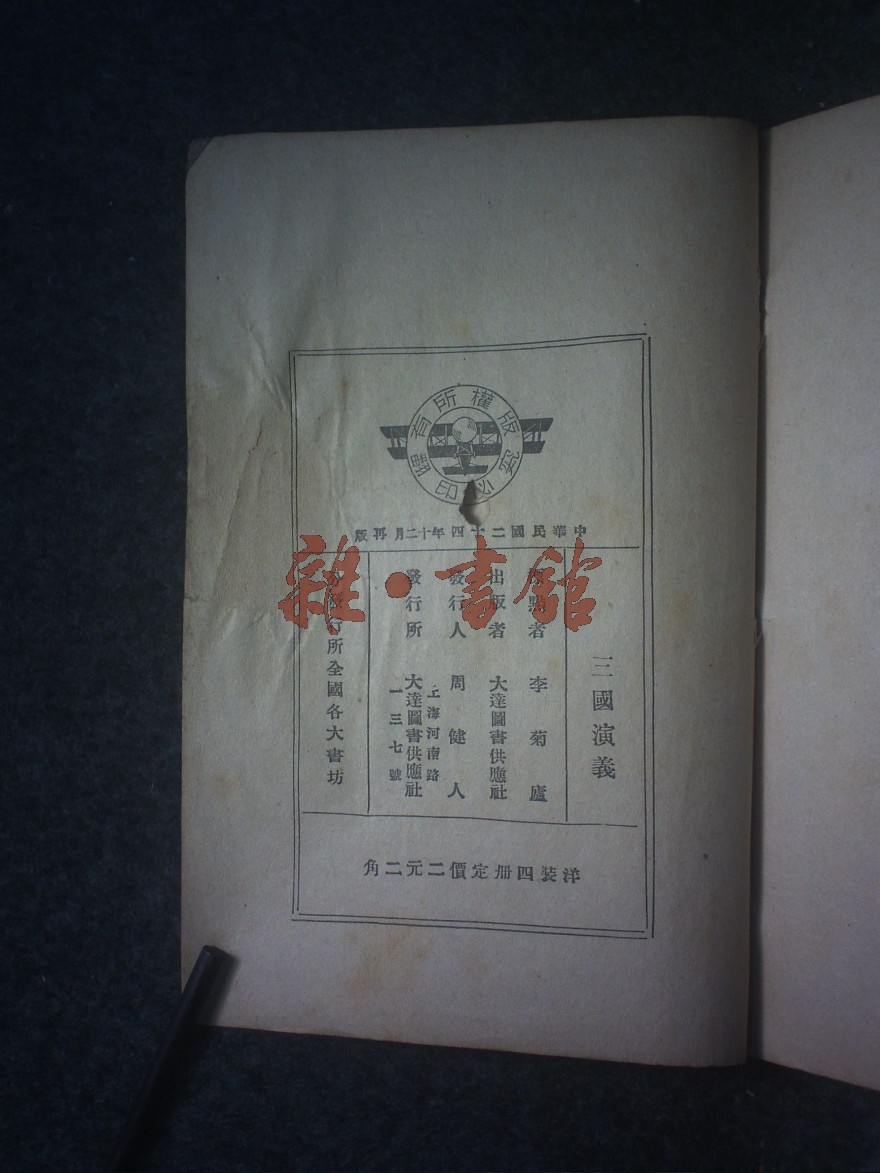 版權所有翻印必究
中華民國二十四年十二月再版
三國演義
點者 李菊廬
出版者 大達圖書供應社
發行人 周健人
發行所 大達圖書供應社
上海河南路
一三七號
行所全國各大書坊
洋裝四冊定價二元二角
雜·書館